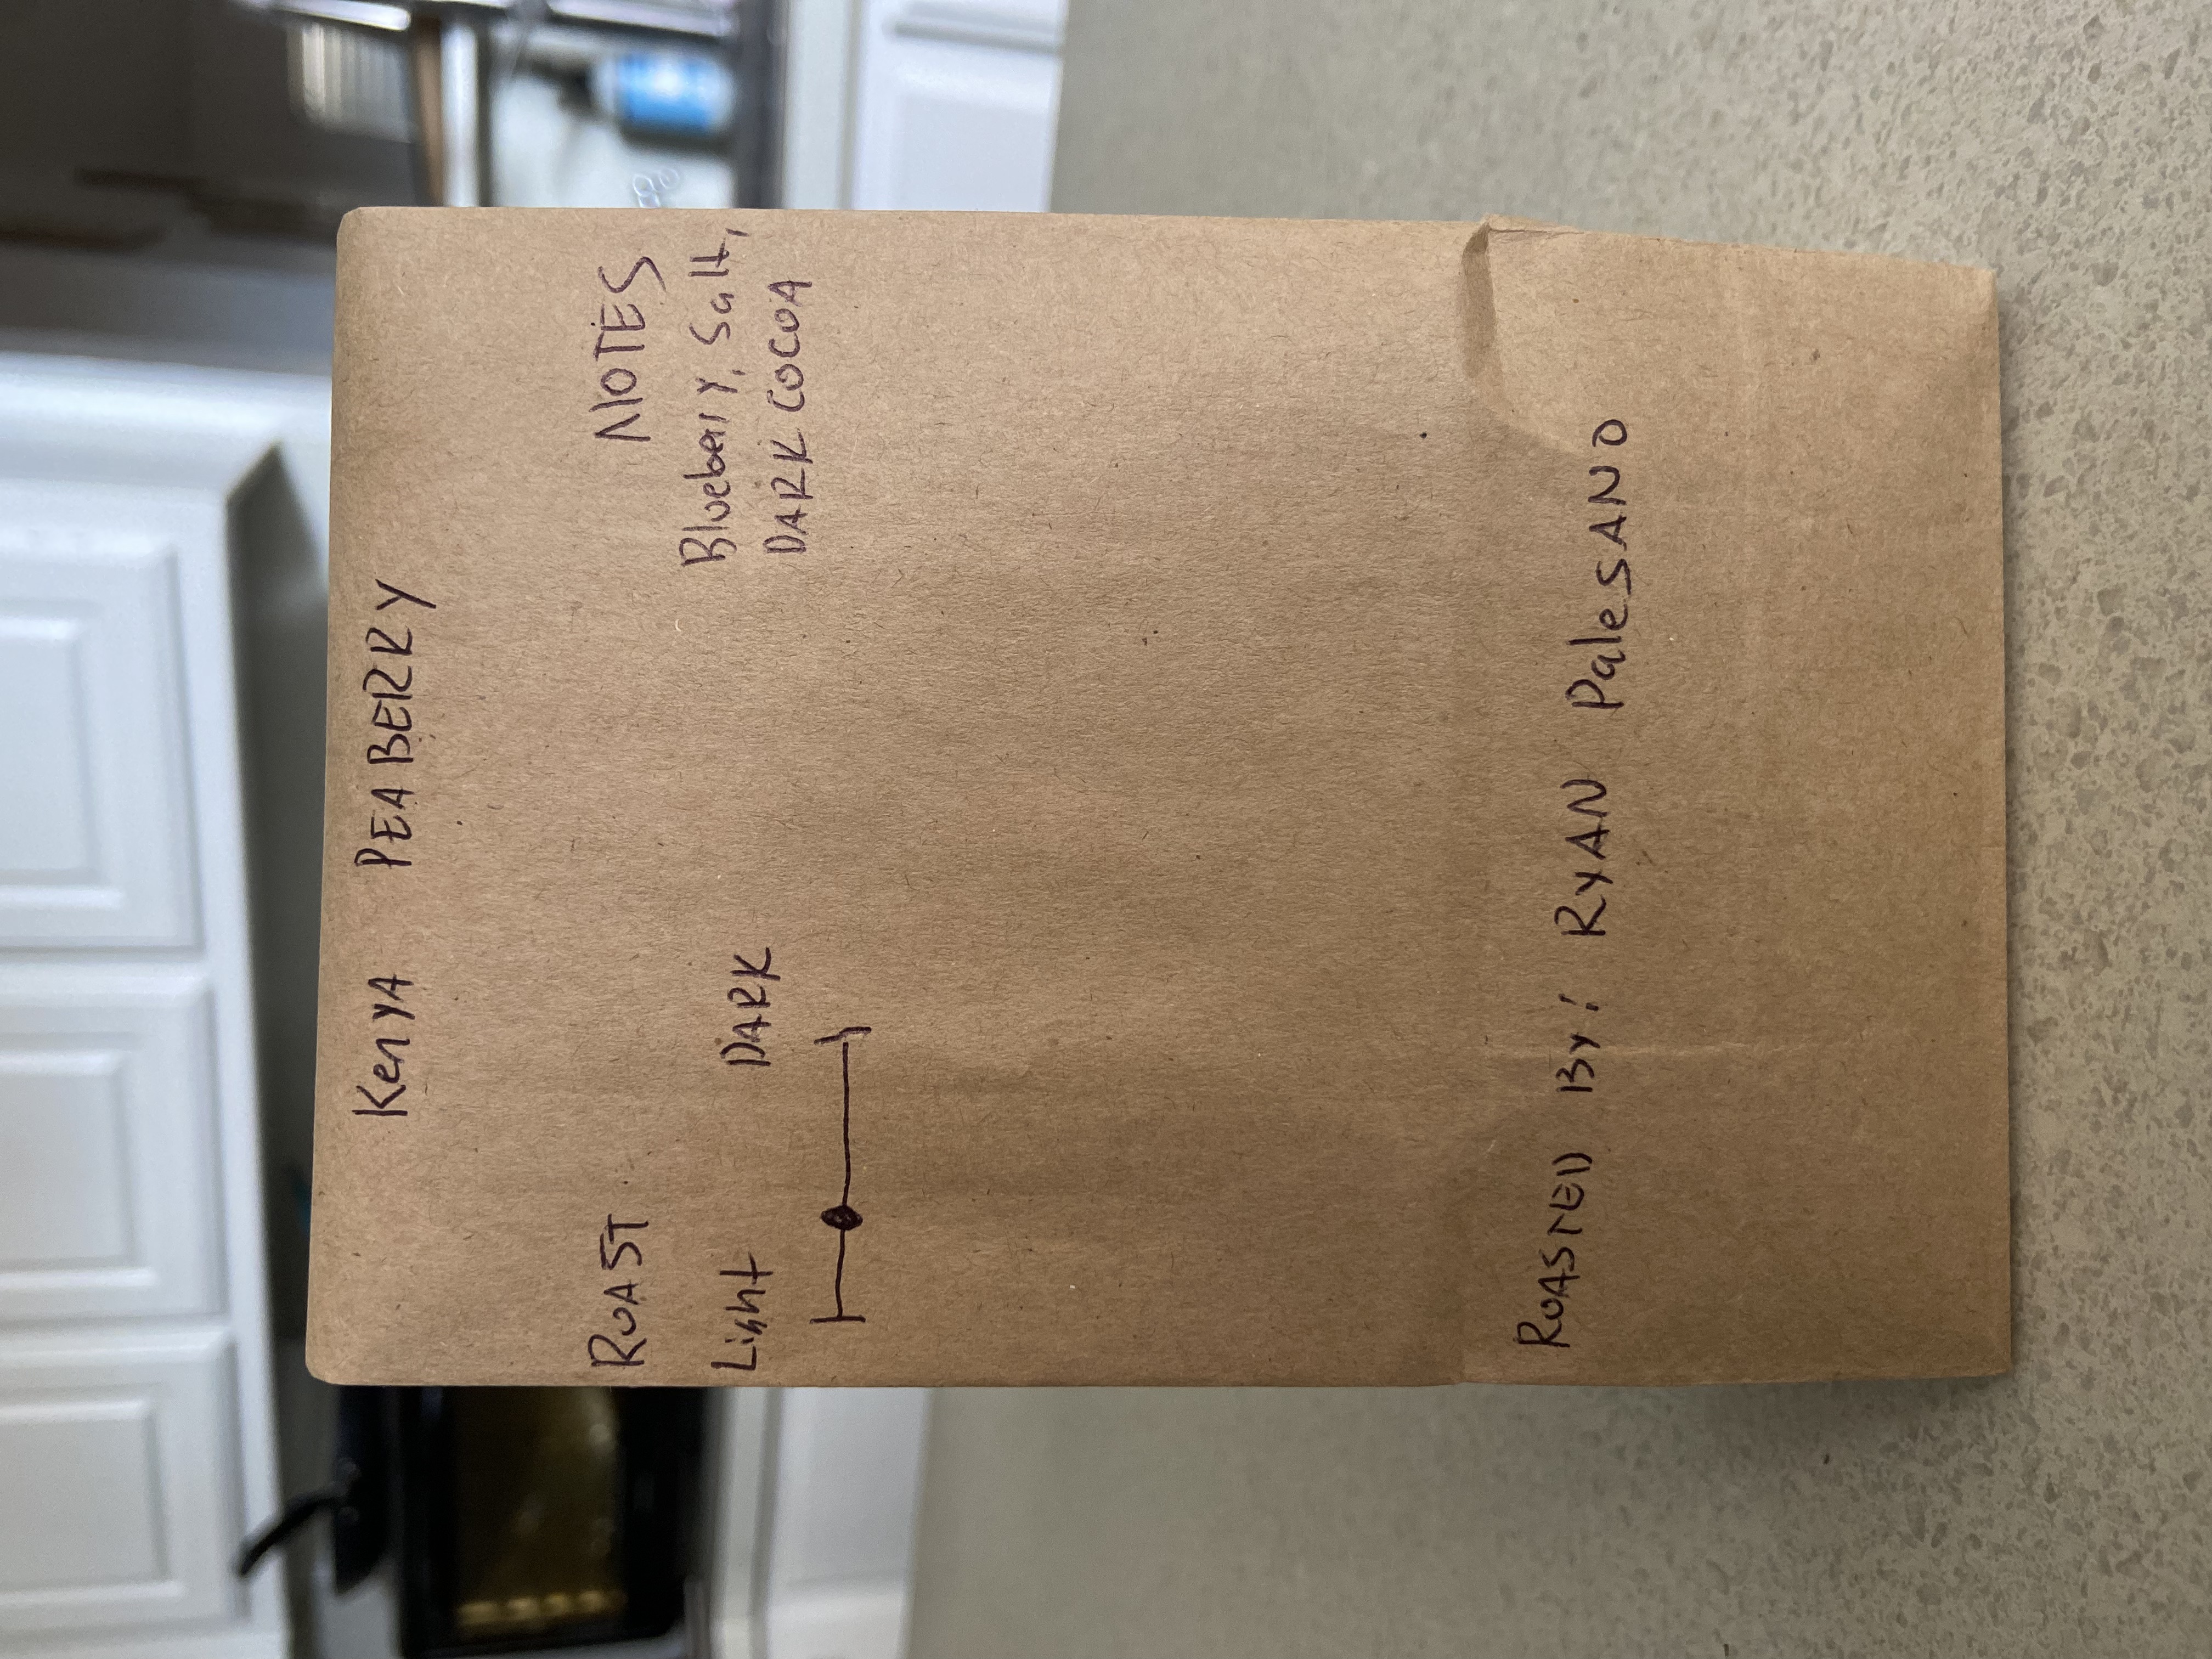 KenyA PEABERRY
ROAST
Light DARK
NOTES
Blueberry, Salt,
DARK COCOA
ROASTED By: RYAN PaleSANO